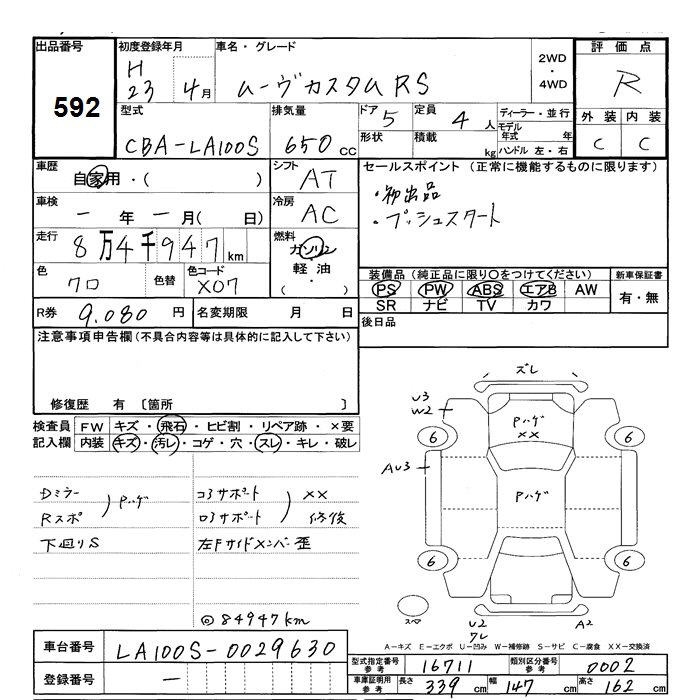 出品番号
592
初度登録年月
H
23 4月
車名・グレード
ムーヴカスタムRS
2WD
・
4WD
評価点
R
外装 内装
C C
型式
CBA-LA100S
排気量
650 cc
ドア 5
形状
定員 4 人
積載 kg
ディーラー・並行
モデル
年式 年
ハンドル 左・右
車歴
自家用・( )
シフト
AT
車検
一 年 一 月( 日)
冷房
AC
走行
8万4千947 km
燃料
ガソリン
・
軽油
・
( )
色
クロ
色替
色コード
X07
R券 9.080 円
名変期限 月 日
セールスポイント (正常に機能するものに限ります)
・初出品
・プッシュスタート
装備品 (純正品に限り○をつけてください)
PS PW ABS エアB AW
SR ナビ TV カワ
新車保証書
有・無
後日品
注意事項申告欄(不具合内容等は具体的に記入して下さい)
修復歴 有 〔箇所 〕
検査員
記入欄
FW キズ・飛石・ヒビ割・リペア跡・×要
内装 キズ・汚レ・コゲ・穴・スレ・キレ・破レ
Dミラー
Rスポ
Pハゲ
下廻りS
コアサポート
ロアサポート
××
修後
左Fサイドメンバー歪
◎84947km
ズレ
U3
W2
Pハゲ
××
6
6
AU3
Pハゲ
6
6
スマ
U2
ワレ
A2
A-キズ E-エクボ U-凹み W-補修跡 S-サビ C-腐食 XX-交換済
車台番号 LA100S-0029630
登録番号 一
型式指定番号
参考
16711
類別区分番号
参考
0002
車庫証明用
参考
長さ 339 cm 幅 147 cm 高さ 162 cm